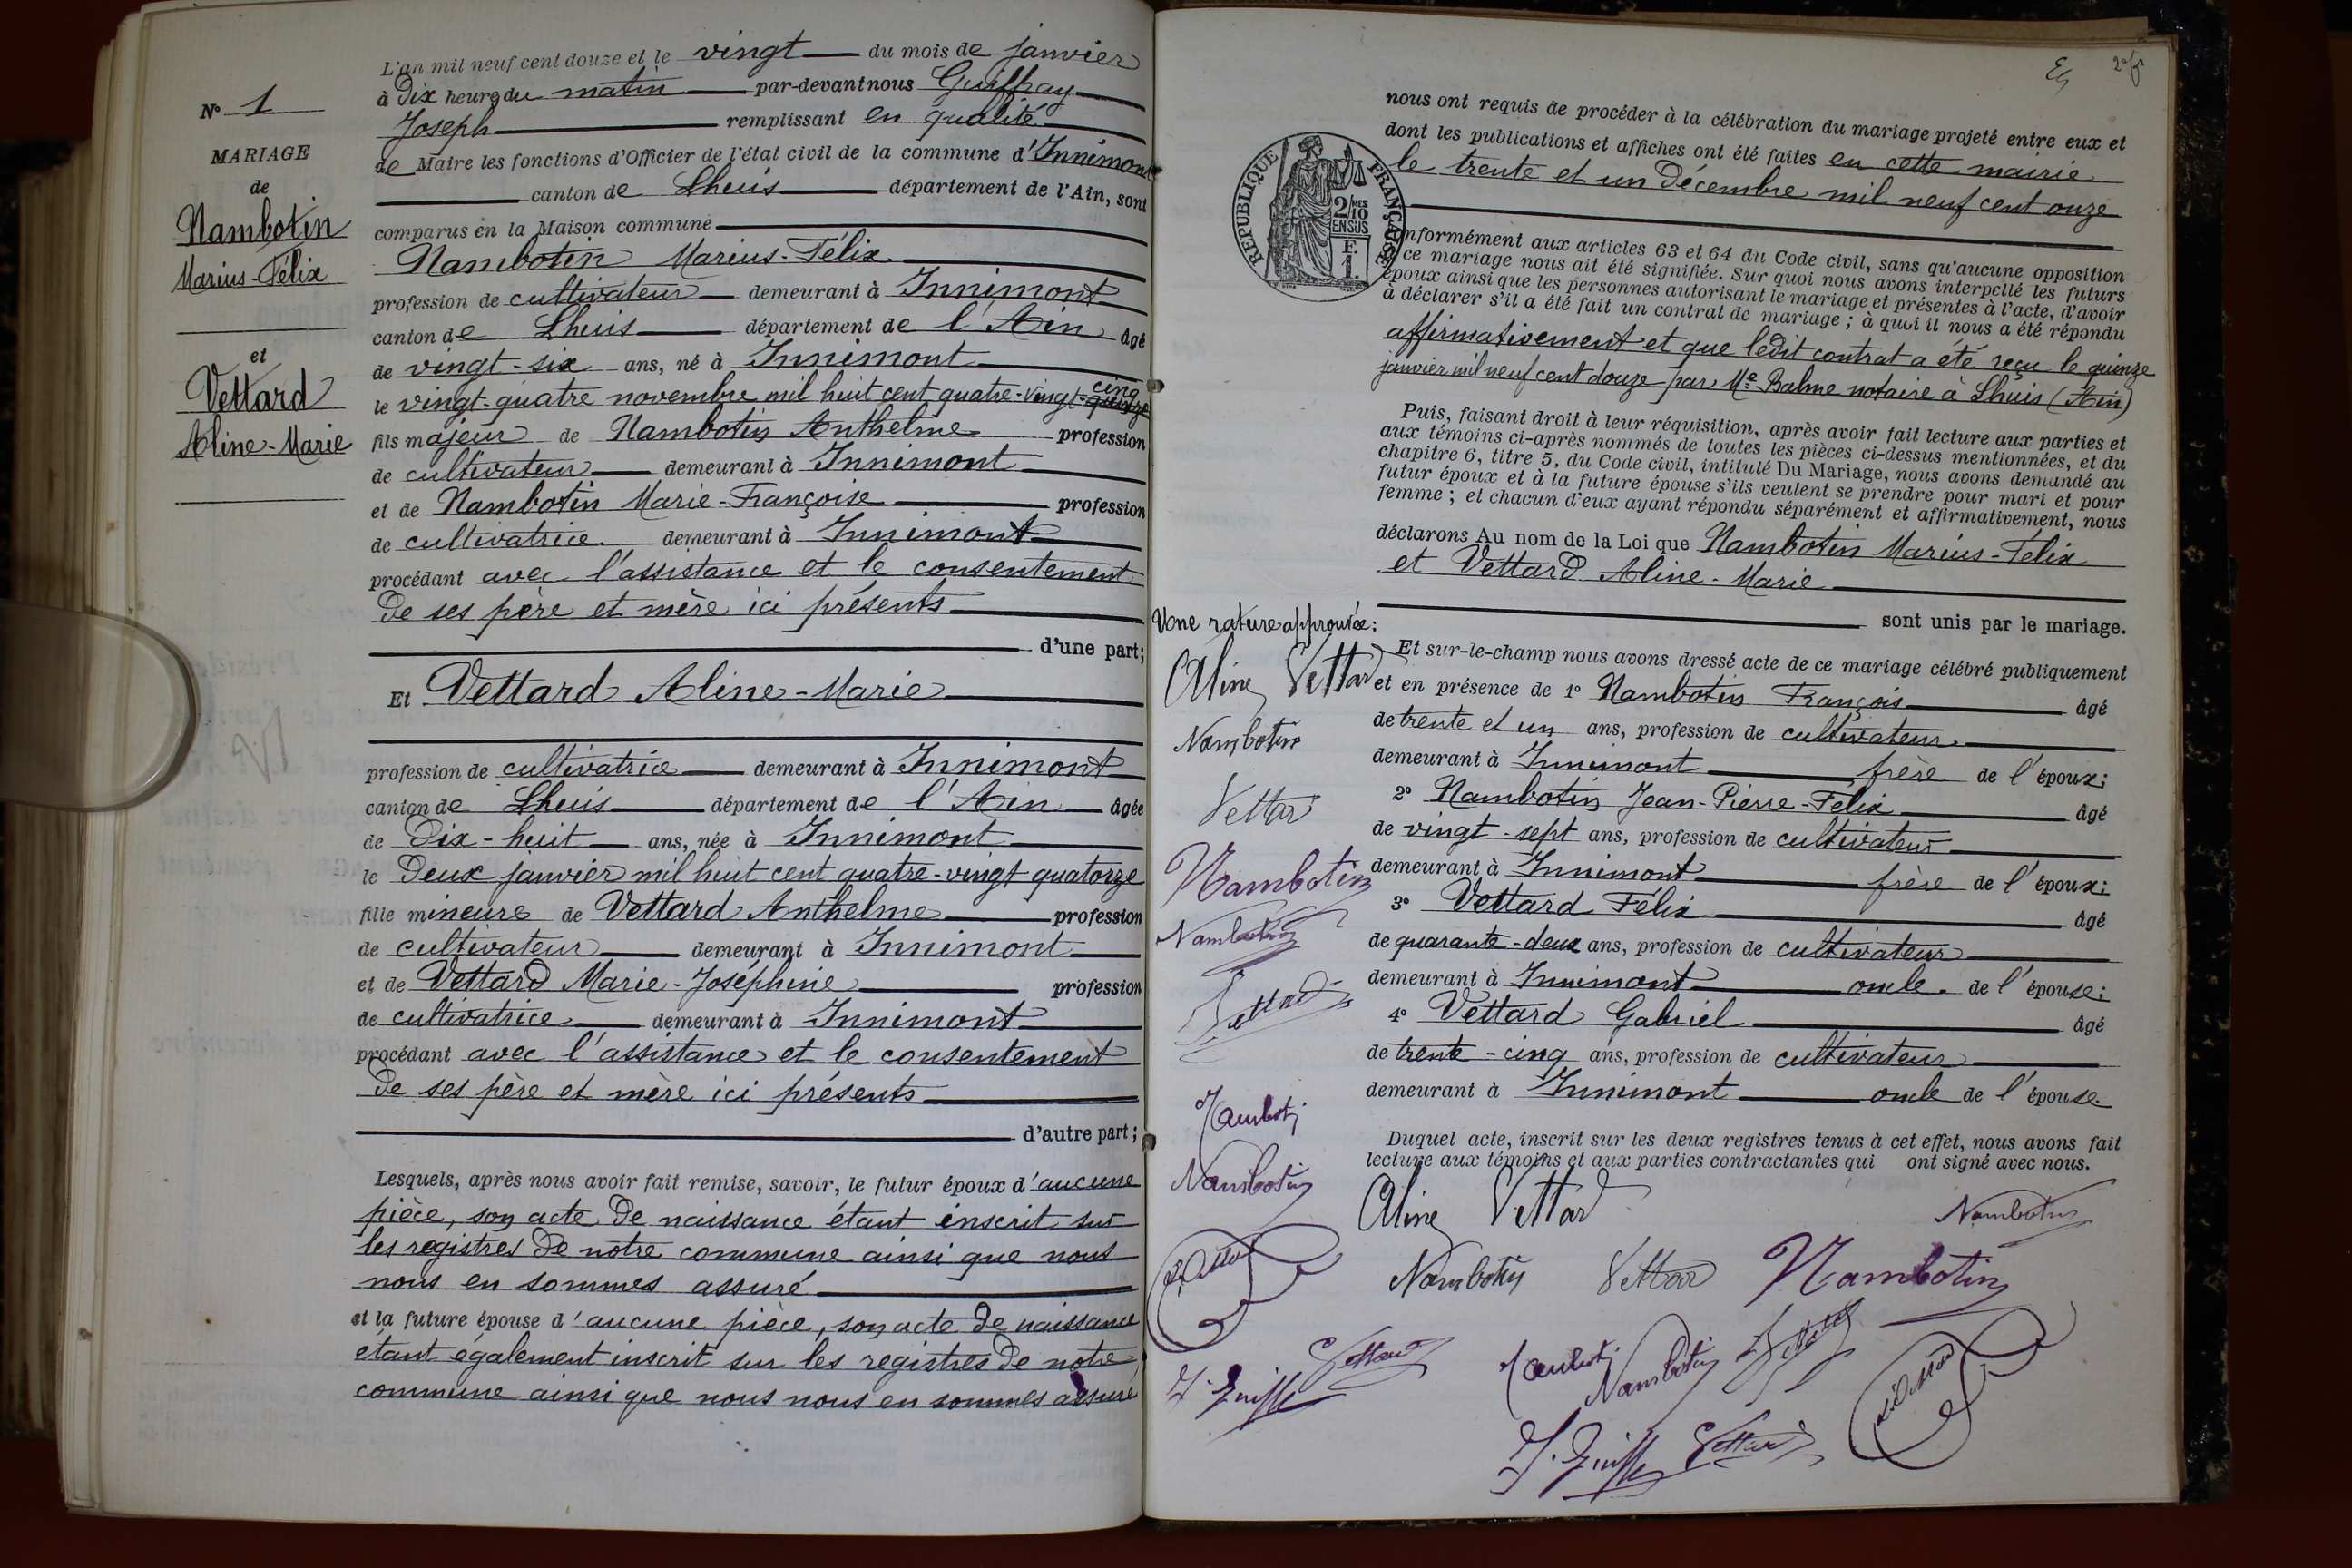 N° 1
MARIAGE
de
Nambotin
Marius-Félix
et
Vettard
Aline-Marie
L'an mil neuf cent douze et le vingt du mois de janvier
à Dix heures du matin par-devant nous Guiffray
Joseph remplissant en qualité
de Maire les fonctions d'Officier de l'état civil de la commune d'Innimont
canton de Lhuis département de l'Ain, sont
comparus en la Maison commune
Nambotin Marius-Félix
profession de cultivateur demeurant à Innimont
canton de Lhuis département de l'Ain âgé
de vingt-six ans, né à Innimont
le vingt-quatre novembre mil huit cent quatre-vingt-cinq
fils majeur de Nambotin Anthelme profession
de cultivateur demeurant à Innimont
et de Nambotin Marie-Françoise profession
de cultivatrice demeurant à Innimont
procédant avec l'assistance et le consentement
de ses père et mère ici présents
d'une part;
Et Vettard Aline-Marie
profession de cultivatrice demeurant à Innimont
canton de Lhuis département de l'Ain âgée
de Dix-huit ans, née à Innimont
le Deux janvier mil huit cent quatre-vingt quatorze
fille mineure de Vettard Anthelme profession
de cultivateur demeurant à Innimont
et de Vettard Marie-Joséphine profession
de cultivatrice demeurant à Innimont
procédant avec l'assistance et le consentement
de ses père et mère ici présents
d'autre part;
Lesquels, après nous avoir fait remise, savoir, le futur époux d'aucune
pièce, son acte de naissance étant inscrit sur
les registres de notre commune ainsi que nous
nous en sommes assuré
et la future épouse d'aucune pièce, son acte de naissance
étant également inscrit sur les registres de notre
commune ainsi que nous nous en sommes assuré
nous ont requis de procéder à la célébration du mariage projeté entre eux et
dont les publications et affiches ont été faites en cette mairie
le trente et un Décembre mil neuf cent onze
REPUBLIQUE FRANÇAISE
2/10 MES
EN SUS
F.
1.
conformément aux articles 63 et 64 du Code civil, sans qu'aucune opposition
à ce mariage nous ait été signifiée. Sur quoi nous avons interpellé les futurs
époux ainsi que les personnes autorisant le mariage et présentes à l'acte, d'avoir
à déclarer s'il a été fait un contrat de mariage; à quoi il nous a été répondu
affirmativement et que ledit contrat a été reçu le quinze
janvier mil neuf cent douze par Me Balme notaire à Lhuis (Ain)
Puis, faisant droit à leur réquisition, après avoir fait lecture aux parties et
aux témoins ci-après nommés de toutes les pièces ci-dessus mentionnées, et du
chapitre 6, titre 5, du Code civil, intitulé Du Mariage, nous avons demandé au
futur époux et à la future épouse s'ils veulent se prendre pour mari et pour
femme; et chacun d'eux ayant répondu séparément et affirmativement, nous
déclarons Au nom de la Loi que Nambotin Marius-Félix
et Vettard Aline-Marie
sont unis par le mariage.
Et sur-le-champ nous avons dressé acte de ce mariage célébré publiquement
et en présence de 1° Nambotin François âgé
de trente et un ans, profession de cultivateur
demeurant à Innimont frère de l'époux;
2° Nambotin Jean-Pierre-Félix âgé
de vingt-sept ans, profession de cultivateur
demeurant à Innimont frère de l'époux;
3° Vettard Félix âgé
de quarante-deux ans, profession de cultivateur
demeurant à Innimont oncle de l'épouse;
4° Vettard Gabriel âgé
de trente-cinq ans, profession de cultivateur
demeurant à Innimont oncle de l'épouse.
Duquel acte, inscrit sur les deux registres tenus à cet effet, nous avons fait
lecture aux témoins et aux parties contractantes qui ont signé avec nous.
Une rature approuvée:
Aline Vettard
Nambotin
Vettar
Nambotin
Nambotin
Vettard
Nambotin
Aline Vettard
Nambotin
Nambotin Vettar Nambotin
Nambotin
Vettard